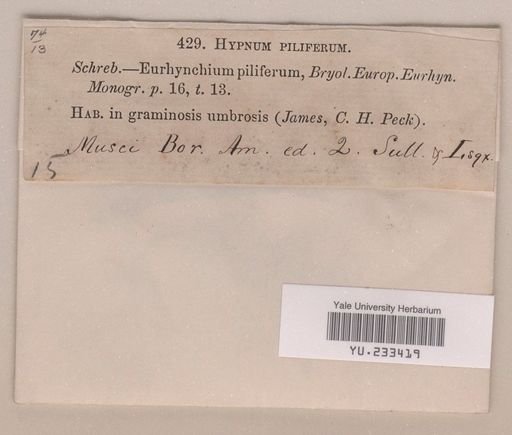 74
13
429. HYPNUM PILIFERUM.
Schreb.—Eurhynchium piliferum, Bryol. Europ. Eurhyn.
Monogr. p. 16, t. 13.
HAB. in graminosis umbrosis (James, C. H. Peck).
Musci Bor. Am. ed. 2. Sull. & Lsqx.
15
Yale University Herbarium
YU.233419